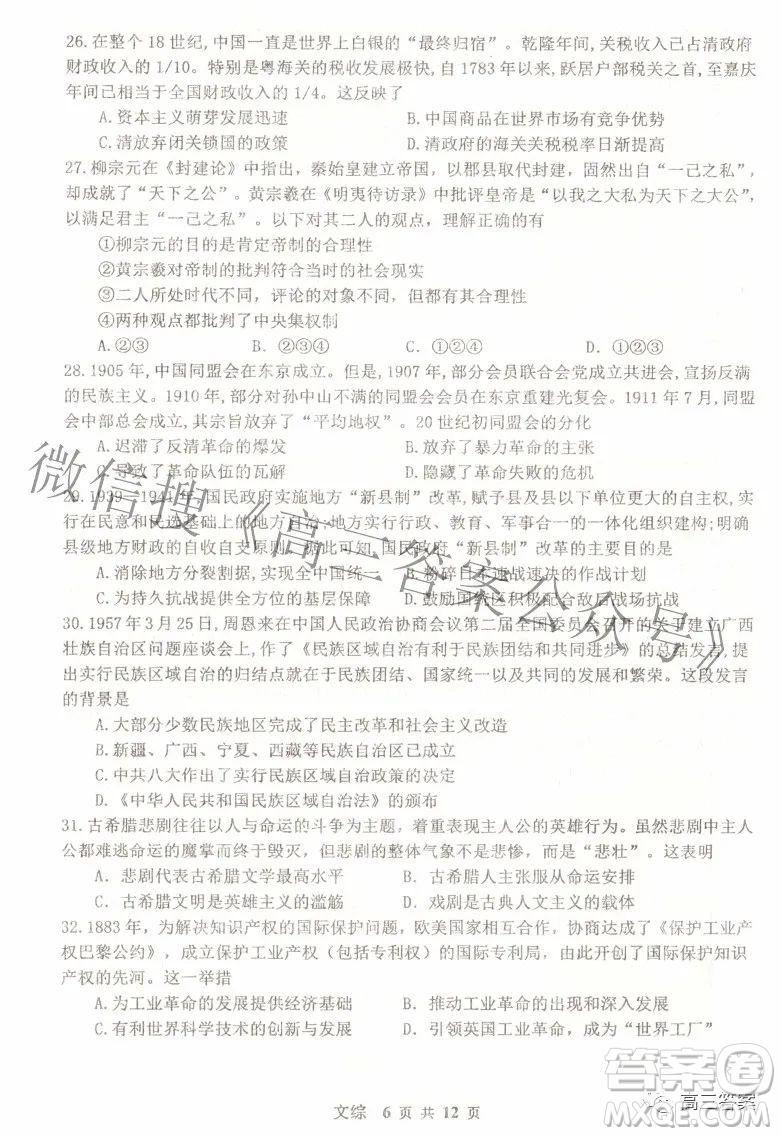 26.在整个 18 世纪,中国一直是世界上白银的“最终归宿”。乾隆年间,关税收入已占清政府
财政收入的 1/10。特别是粤海关的税收发展极快,自 1783 年以来,跃居户部税关之首,至嘉
庆年间已相当于全国财政收入的 1/4。这反映了
A.资本主义萌芽发展迅速 B.中国商品在世界市场有竞争优势
C.清放弃闭关锁国的政策 D.清政府的海关关税税率日渐提高
27.柳宗元在《封建论》中指出，秦始皇建立帝国，以郡县取代封建，固然出自“一己之私”，
却成就了“天下之公”。黄宗羲在《明夷待访录》中批评皇帝是“以我之大私为天下之大公”,
以满足君主“一己之私”。以下对其二人的观点，理解正确的有
①柳宗元的目的是肯定帝制的合理性
②黄宗羲对帝制的批判符合当时的社会现实
③二人所处时代不同，评论的对象不同，但都有其合理性
④两种观点都批判了中央集权制
A.②③ B.①③ C．①②③ D．①②③④
28.1905 年,中国同盟会在东京成立。但是,1907 年,部分会员联合会党成立共进会,宣扬反满
的民族主义。1910 年,部分对孙中山不满的同盟会会员在东京重建光复会。1911 年 7 月,同盟
会中部总会成立,其宗旨放弃了“平均地权”。20 世纪初同盟会的分化
A．迟滞了反清革命的爆发 B．放弃了暴力革命的主张
C.导致了革命队伍的瓦解 D.隐藏了革命失败的危机
29.1939—1941年,国民政府实施地方“新县制”改革,赋予县及县以下单位更大的自主权,实
行在民意和民选基础上的地方自治;实行行政、教育、军事合一的一体化组织建构;明确
县级地方财政的自收自支原则。据此可知,国民政府“新县制”改革的主要目的是
A.消除地方分裂割据,实现全国统一 B.粉碎日本速战速决的作战计划
C.为持久抗战提供全方位的基层保障 D.鼓励国统区积极配合敌后战场抗战
30.1957 年 3 月 25 日，周恩来在中国人民政治协商会议第二届全国委员会召开的关于建立广西
壮族自治区问题座谈会上,作了《民族区域自治有利于民族团结和共同进步》的总结发言,
提出实行民族区域自治的归结点就在于民族团结、国家统一以及共同的发展和繁荣。这段发言
的背景是
A.大部分少数民族地区完成了民主改革和社会主义改造
B.新疆、广西、宁夏、西藏等民族自治区已成立
C.中共八大作出了实行民族区域自治政策的决定
D.《中华人民共和国民族区域自治法》的颁布
31.古希腊悲剧往往以人与命运的斗争为主题，着重表现主人公的英雄行为。虽然悲剧中主人
公都难逃命运的魔掌而终于毁灭，但悲剧的整体气象不是悲惨，而是“悲壮”。这表明
A．悲剧代表古希腊文学最高水平 B．古希腊悲剧主张服从命运安排
C．古希腊文明是人文主义的滥觞 D．戏剧是古典人文主义的载体
32.1883 年，为解决知识产权的国际保护问题，欧美国家相互合作，协商达成了《保护工业产
权巴黎公约》，成立保护工业产权（包括专利权）的国际专利局，由此开创了国际保护知识
产权的先河。这一举措
A.为工业革命的发展提供经济基础 B．推动工业革命的出现和深入发展
C.有利世界科学技术的创新与发展 D．引领英国工业革命，成为“世界工厂”
文综 6 页 共 12 页
微信搜《高三答案公众号》
答案圈
高三答案
MXQE.COM